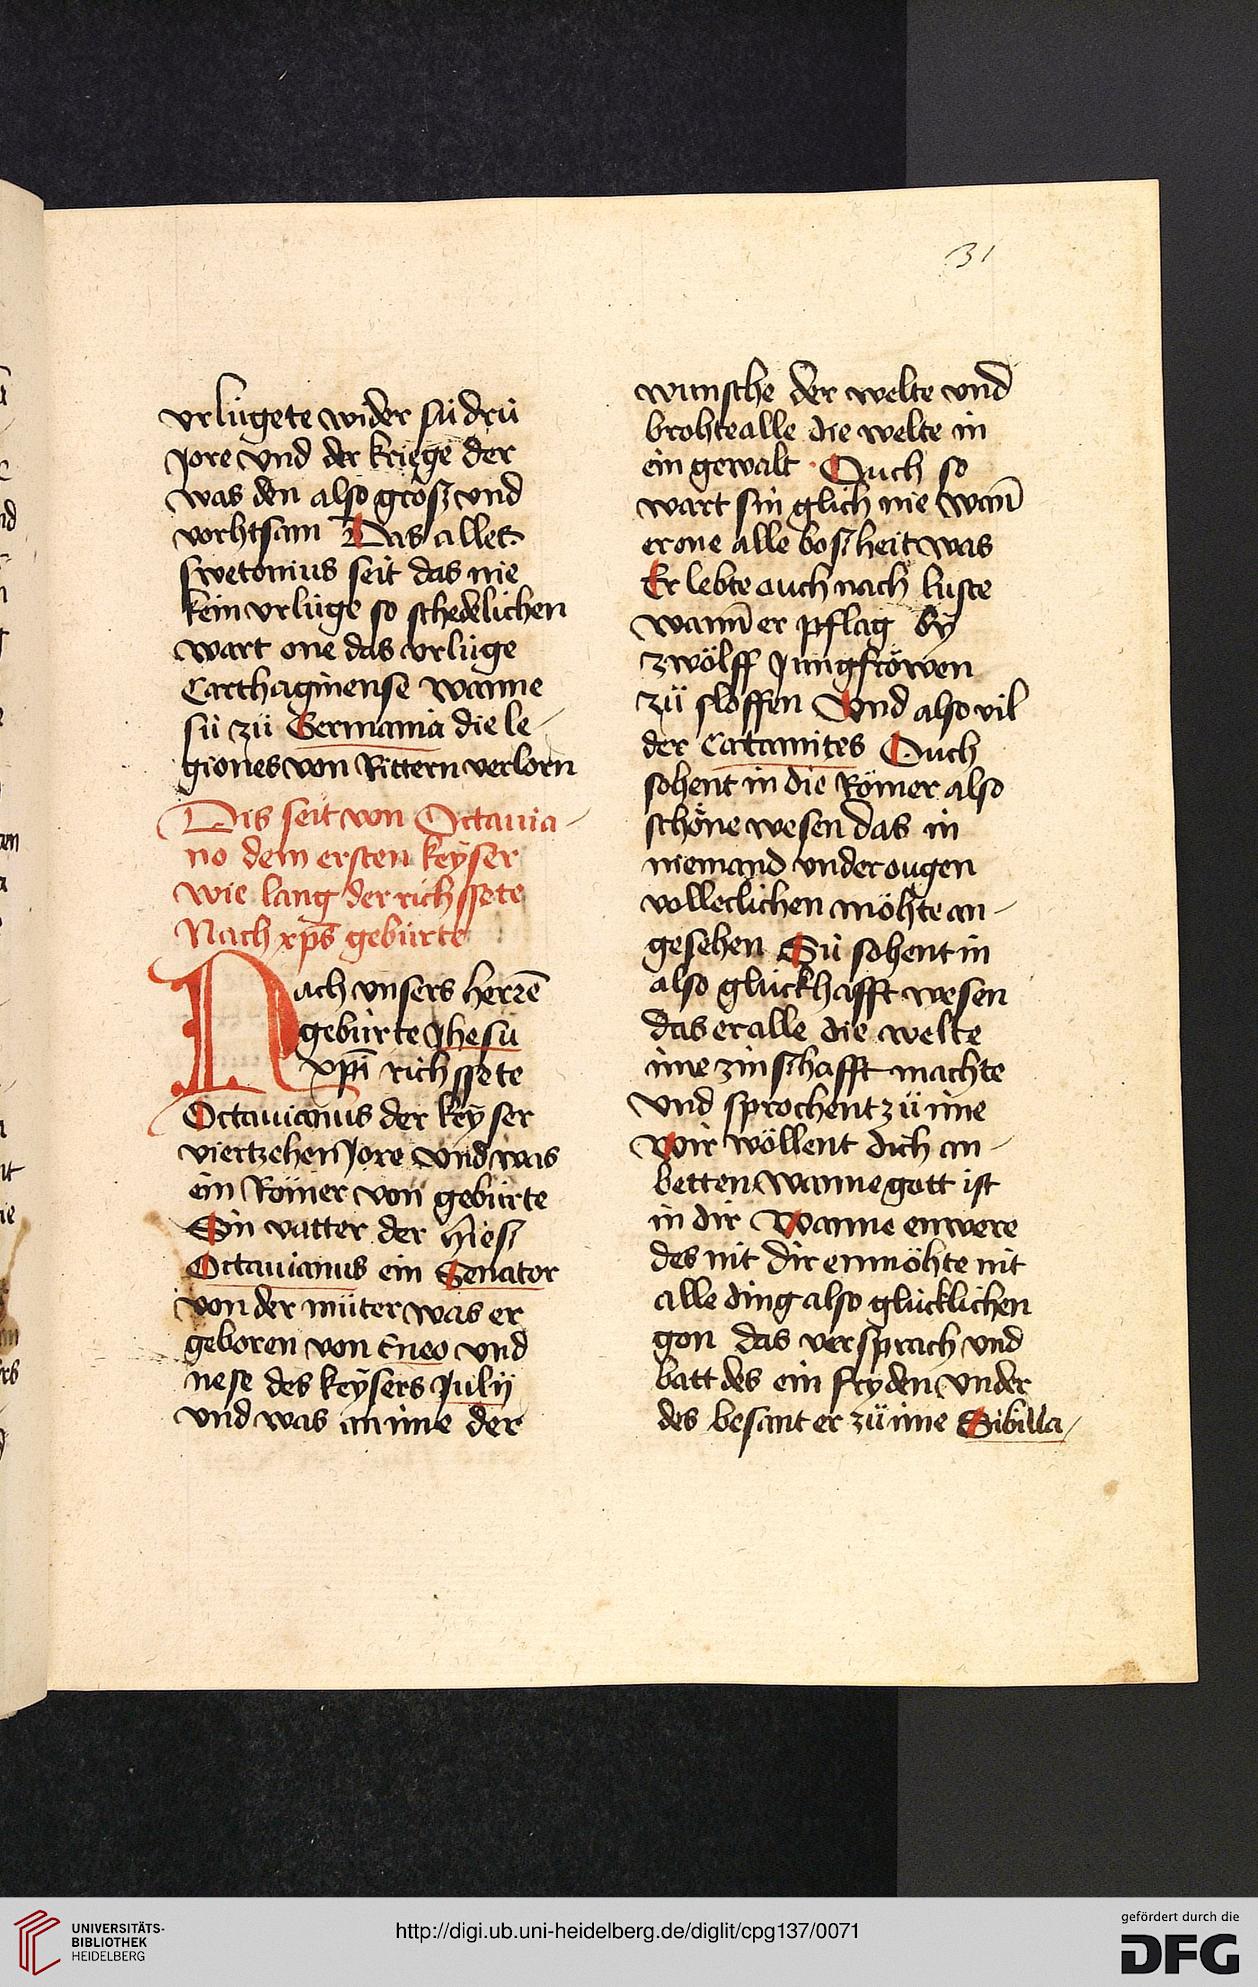 31
vrlugete wider sü drü
Jore vnd der kriege der
was den also grosz vnd
vorhtsam Das alles
swetonius seit das nie
kein vrlüge so schedelichen
wart one das vrlüge
Carthaginense wanne
sü zü Germania die le-
giones von Rittern verlorn
Dis seit von Octauia-
no dem ersten keyser
wie lang der richssete
Nach xp̄s gebürte
Nach vnsers herrē
gebürte Jhesu
xp̄i richssete
Octauianus der keyser
viertzehen Jore vnd was
ein Römer von gebürte
Sin vatter der hiesz
Octauianus ein Senator
von der müter was er
geboren von Eneo vnd
nefe des keysers Julij
vnd was an ime der
wunsche der welte vnd
brohte alle die welte in
ein gewalt Ouch so
wart sin glich nie wan̄
er one alle boszheit was
Er lebte auch nach luste
wann̄ er pflag by
zwölff Jungfröwen
zü sloffen Vnd also vil
der Catamites Ouch
sohent in die Römer also
schöne wesen das in
niemand vnder ougen
volleclichen möhte an-
gesehen Sü sohent in
also glückhafft wesen
das er alle die welte
ime zinszhafft machte
vnd sprochent zü ime
Wir wöllent dich an-
betten wanne gott ist
in dir Wanne enwere
des nit dir enmöhte nit
alle ding also glücklichen
gon das versprach vnd
batt des ein fryden vnder
des besant er zü ime Sibilla
UNIVERSITÄTS-
BIBLIOTHEK
HEIDELBERG
http://digi.ub.uni-heidelberg.de/diglit/cpg137/0071
gefördert durch die
DFG